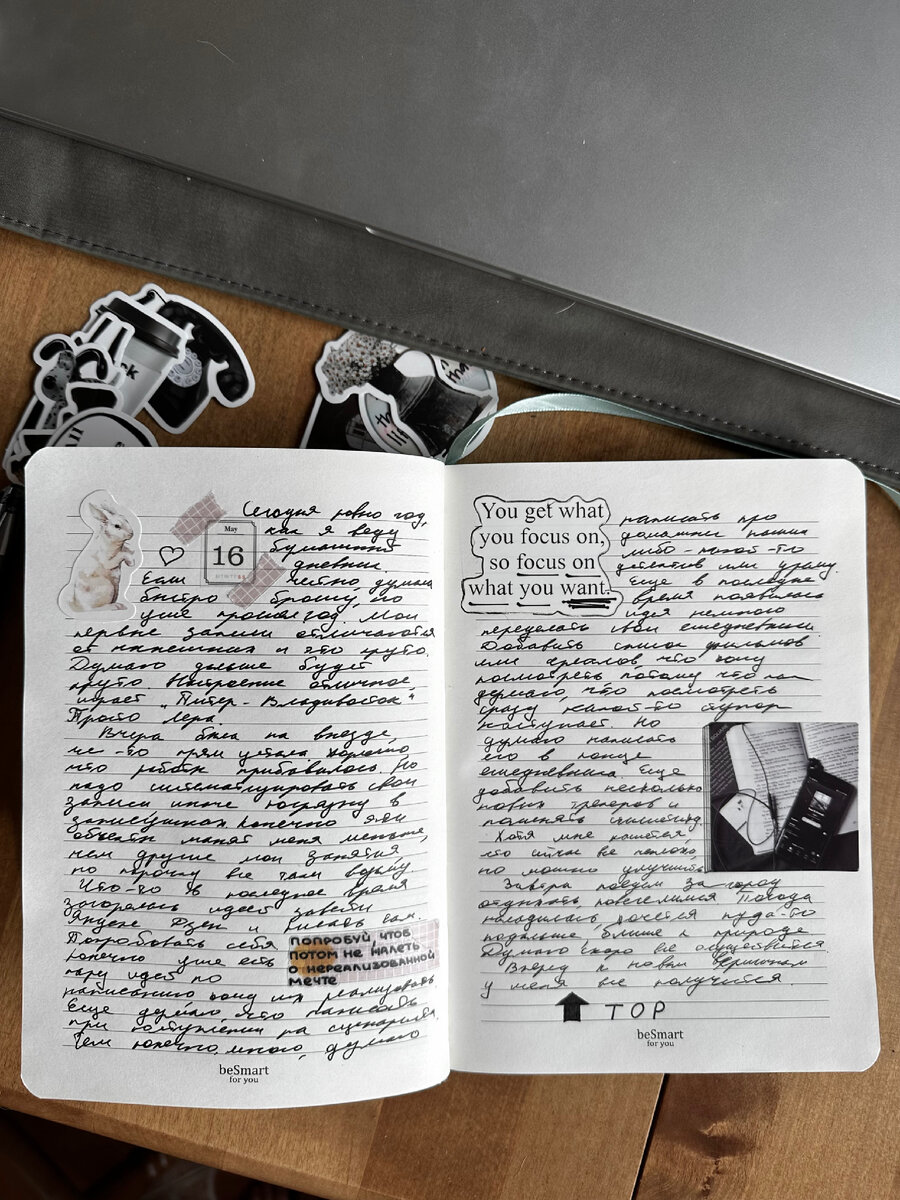 May
16
Сегодня ровно год,
как я веду
бумажный
дневник
Если честно думала
быстро брошу, но
уже прошел год. Мои
первые записи отличаются
от нынешних и это круто.
Думаю дальше будет
круто Настроение отличное,
играет "Питер - Владивосток"
Просто Лера.
Вчера была на выезде,
че-то прям устала
что работы прибавилось. Но
надо систематизировать свои
записи иначе в
записушках. Конечно эти
объекты манят меня меньше,
чем другие мои занятия,
но порочку все там
Что-то в последнее время
загорелась идеей завести
Яндекс Дзен и писать там.
Попробовать себя
Конечно уже есть
пару идей по
написанию хочу их реализовать.
Еще думаю, что написать
при поступлении на сценариста.
Тем конечно много, думаю
ПОПРОБУЙ, ЧТОБ
ПОТОМ НЕ ЖАЛЕТЬ
О НЕРЕАЛИЗОВАННОЙ
МЕЧТЕ
beSmart
for you
You get what
you focus on,
so focus on
what you want.
написать про
либо какой-то
детектив или драму.
Еще в последнее
время появилась
идея немного
переделать свои ежедневники.
Добавить список фильмов
или сериалов, что хочу
посмотреть потому что как
думаю, что посмотреть
сразу какой-то ступор
наступает. Но
думаю написать
его в конце
ежедневника. Еще
добавить несколько
новых трекеров и
поменять
Хотя мне кажется
что сейчас все неплохо,
но можно улучшить
Завтра поедем за город
отдыхать повеселимся Погода
наладилась, хочется куда-то
подальше, ближе к природе.
Думаю скоро все осуществится
Вперед к новым вершинам
у меня все получится.
TOP
beSmart
for you